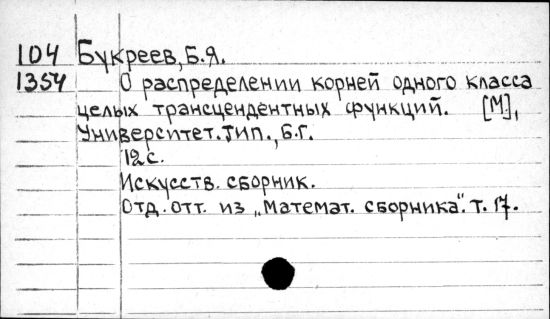 104 Букреев, Б.Я.
1354 О распределении корней одного класса
целых трансцендентных функций. [М],
Университет. тип., б.г.
12 с.
Искусств. сборник.
Отд. отт. из „Математ. сборника". т. 17.